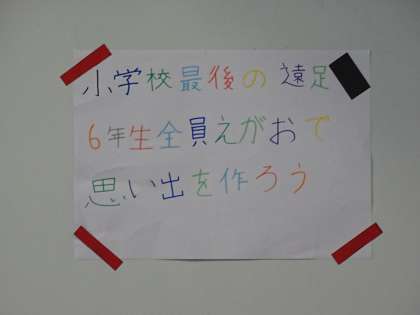 小学校最後の遠足
6年生全員えがおで
思い出を作ろう